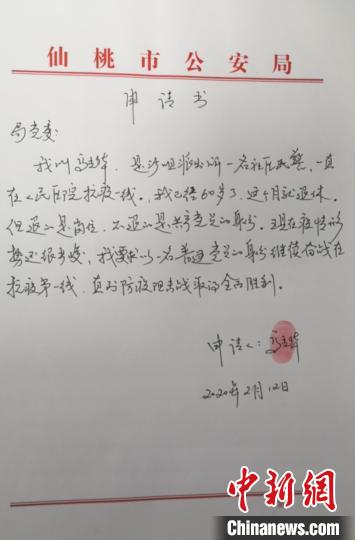 仙桃市公安局
申请书
局党委:
我叫冯主华,是沙咀派出所一名社区民警,一直
在人民医院抗疫一线。我已经60岁了,这个月就退休。
但退的是岗位,不退的是共产党员的身份。现在疫情形
势还很严峻,我要求以一名普通党员的身份继续奋战在
抗疫第一线,直到防疫阻击战取得全面胜利。
申请人:
2020年2月12日
中新网
Chinanews.com